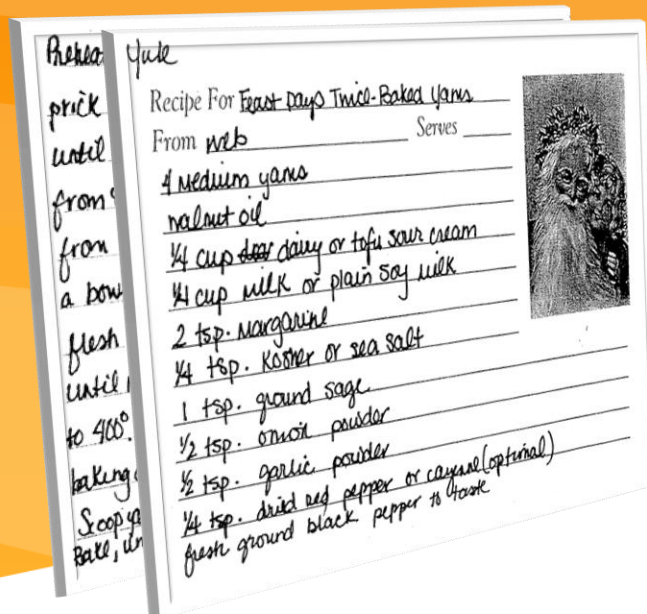 Prehea
prick
until
from
from
a bow
flesh
until
to 400°.
baking
Scoop ya
Bake, un
Yule
Recipe For Feast Days Twice-Baked Yams
From web Serves
4 medium yams
walnut oil
1/4 cup dairy or tofu sour cream
1/4 cup milk or plain soy milk
2 tsp. margarine
1/4 tsp. Kosher or sea salt
1 tsp. ground sage
1/2 tsp. onion powder
1/2 tsp. garlic powder
1/4 tsp. dried red pepper or cayenne (optional)
fresh ground black pepper to taste